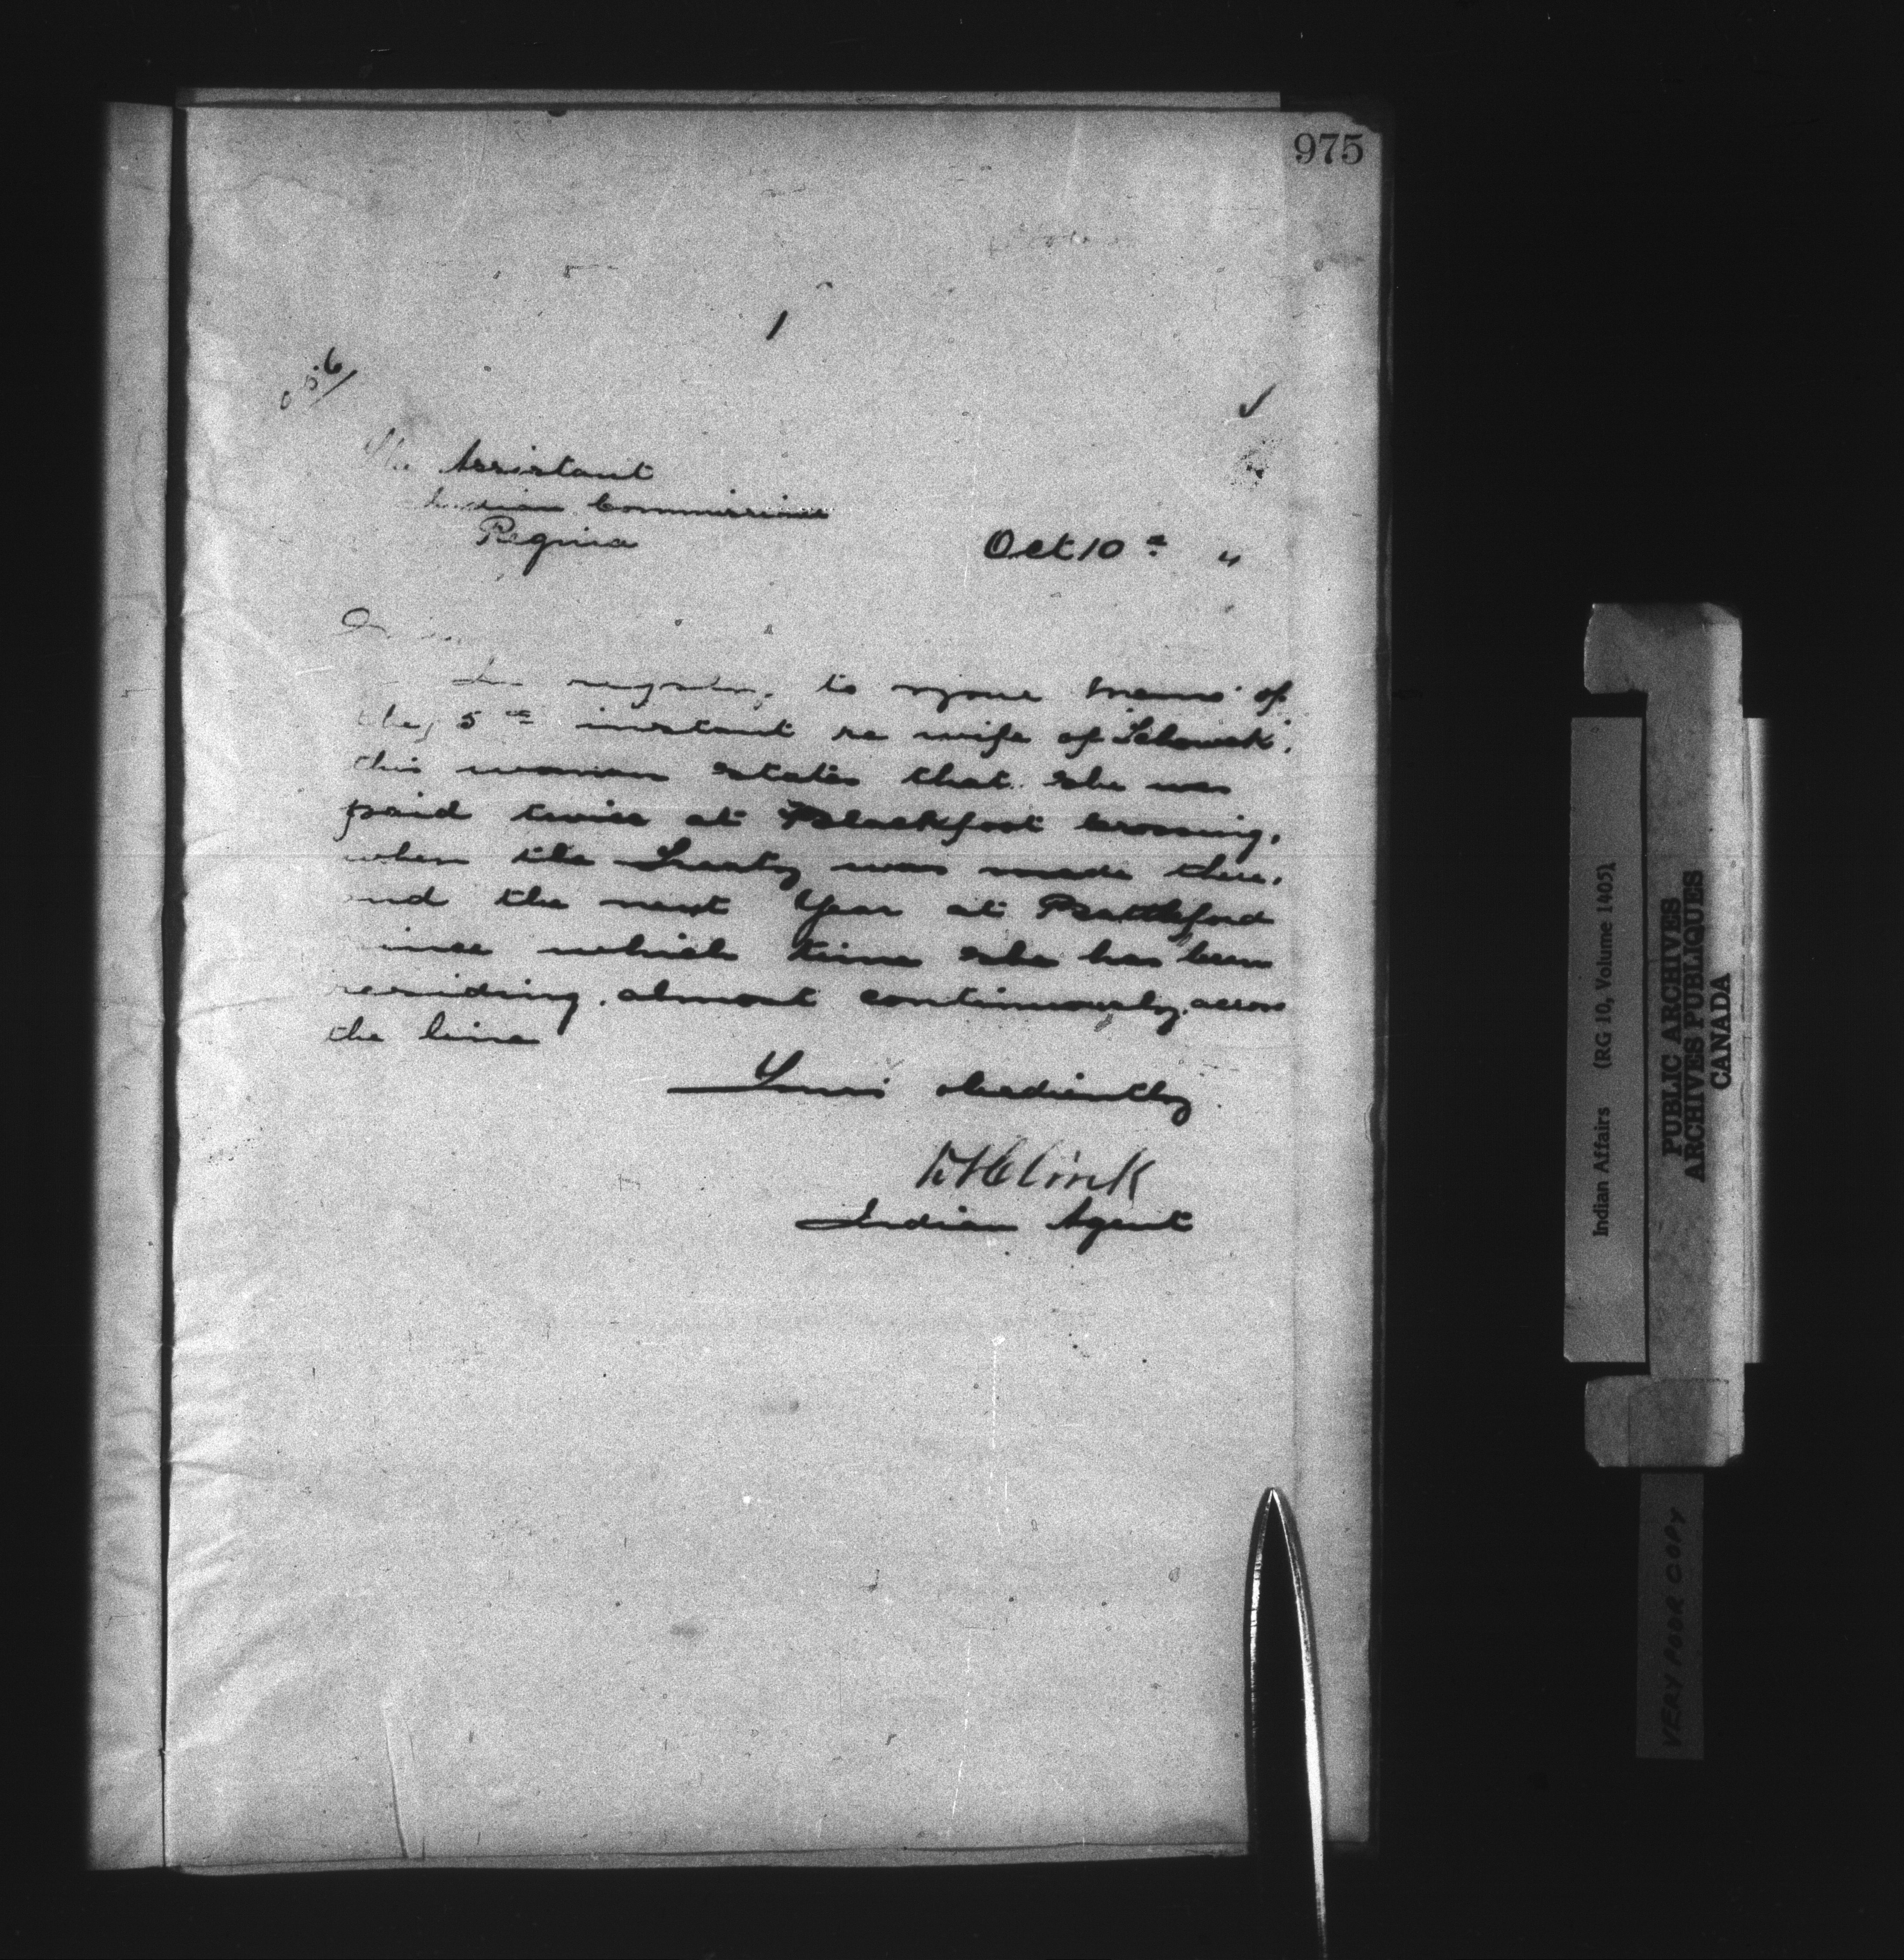 975
1
The Assistant
Indian Commissioner
Regina
Oct 10th "
Sir
In to your memo of
the 5th instant re wife of
this woman states that she was
paid twice at Blackfoot Crossing,
when the Treaty was made there,
and the next Year at Battleford
since which time she has been
residing, almost continuously, across
the line
Yours obediently
Indian Agent
Indian Affairs (RG 10, Volume 1405)
PUBLIC ARCHIVES
ARCHIVES PUBLIQUES
CANADA
VERY POOR COPY